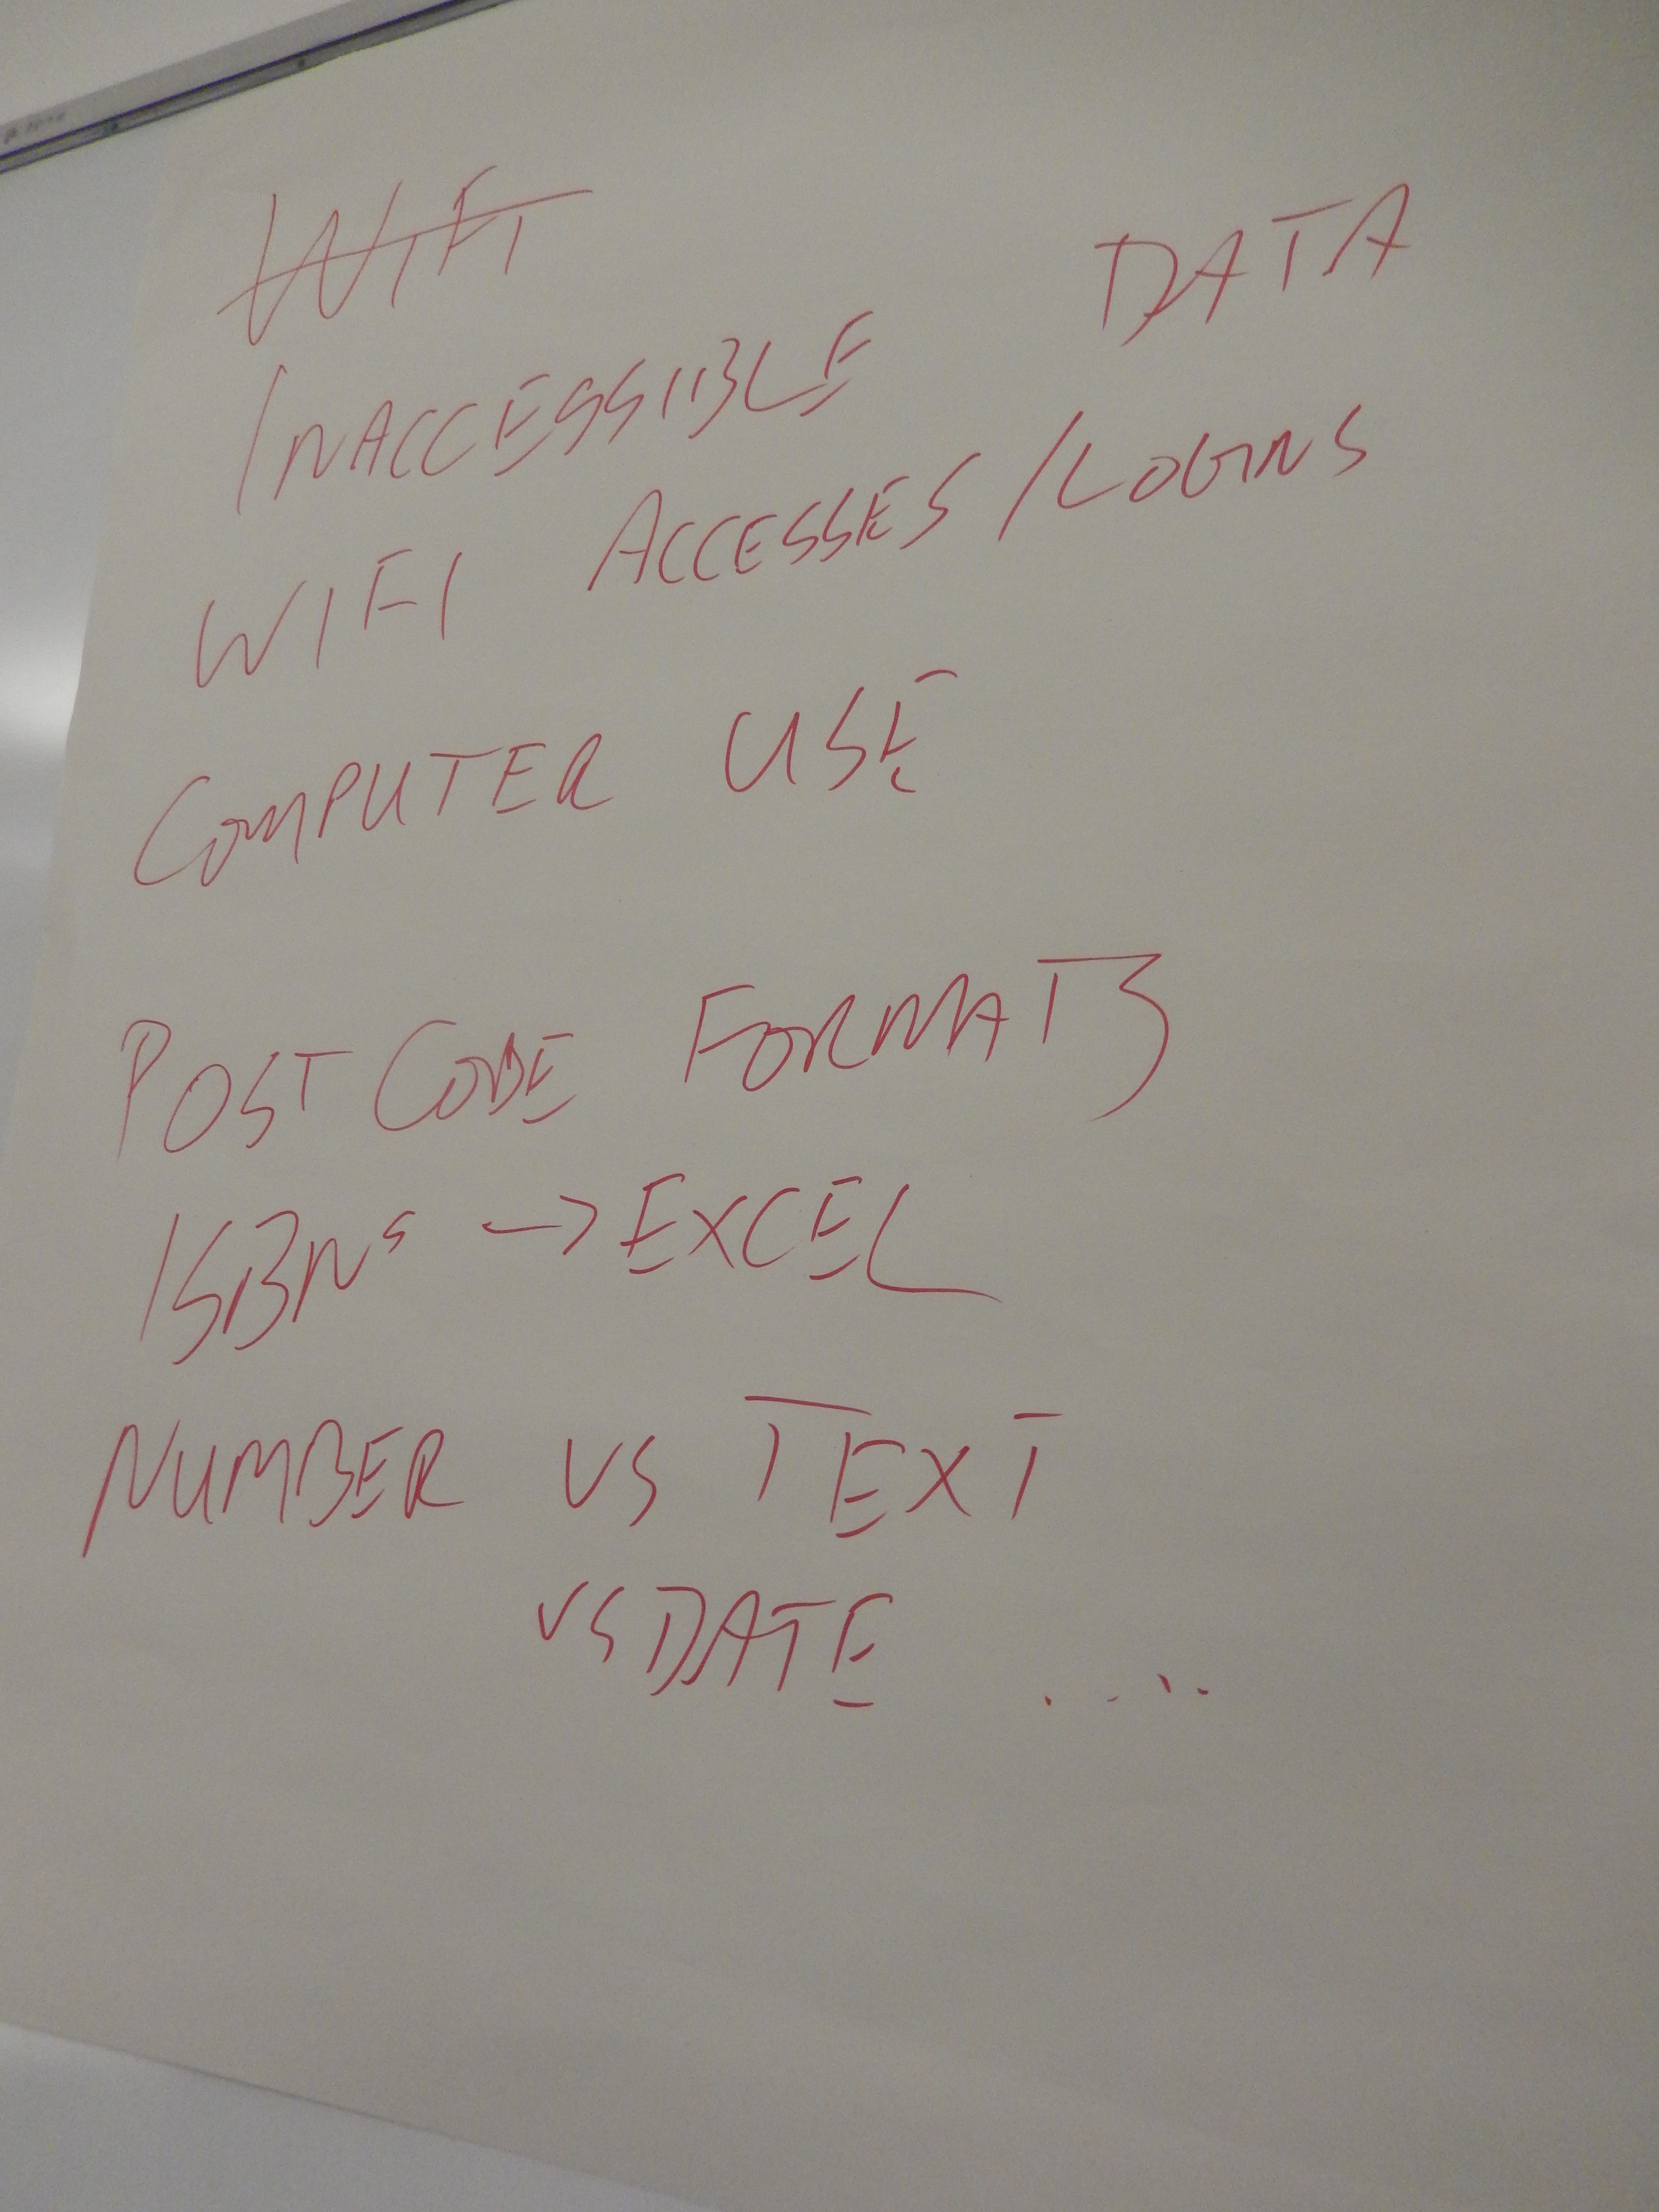 WIFI
INACCESSIBLE DATA
WIFI ACCESSES/LOGINS
COMPUTER USE
POSTCODE FORMATS
ISBNs → EXCEL
NUMBER VS TEXT
VS DATE ....